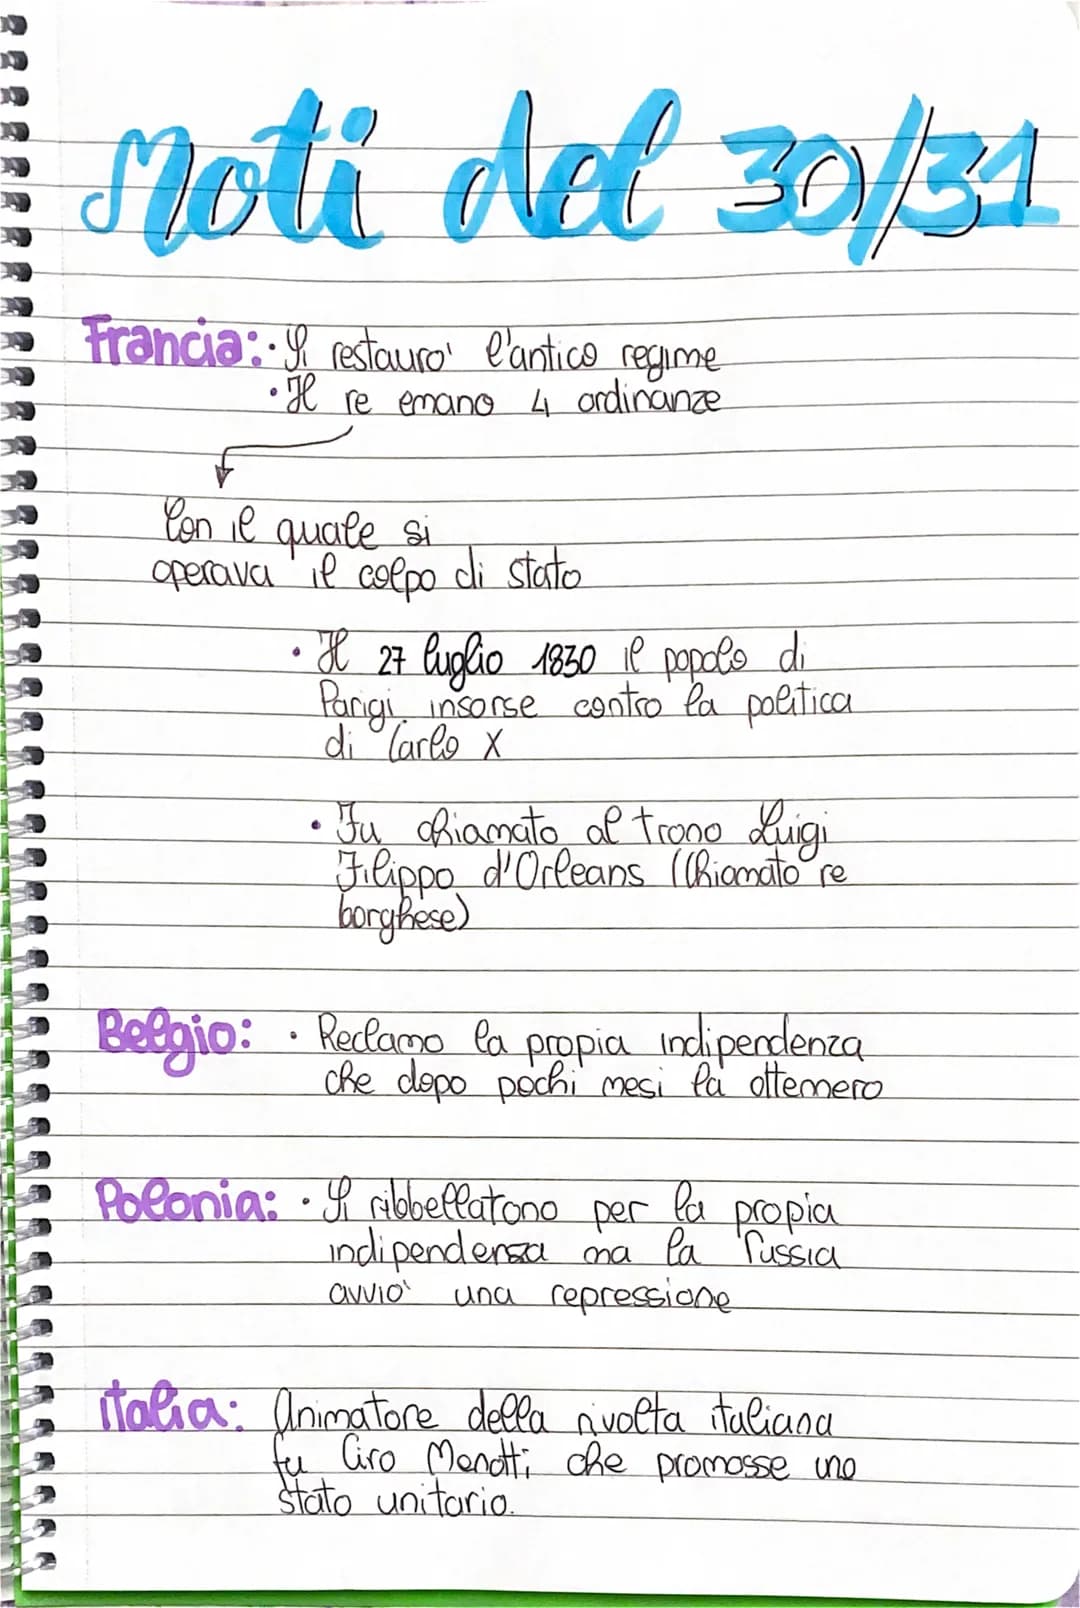 Moti del 30/31
Francia: · Si restauro' l'antico regime
· Il re emano 4 ordinanze
Con il quale si
operava il colpo di stato
· Il 27 luglio 1830 il popolo di
Parigi insorse contro la politica
di Carlo X
· Fu chiamato al trono Luigi
Filippo d'Orleans (Chiamato re
borghese)
Belgio: · Reclamo la propia indipendenza
che dopo pochi mesi la ottennero
Polonia: · Si ribbellatono per la propia
indipendenza ma la russia
avvio' una repressione
italia: Animatore della rivolta italiana
fu Ciro Menotti che promosse uno
stato unitario.